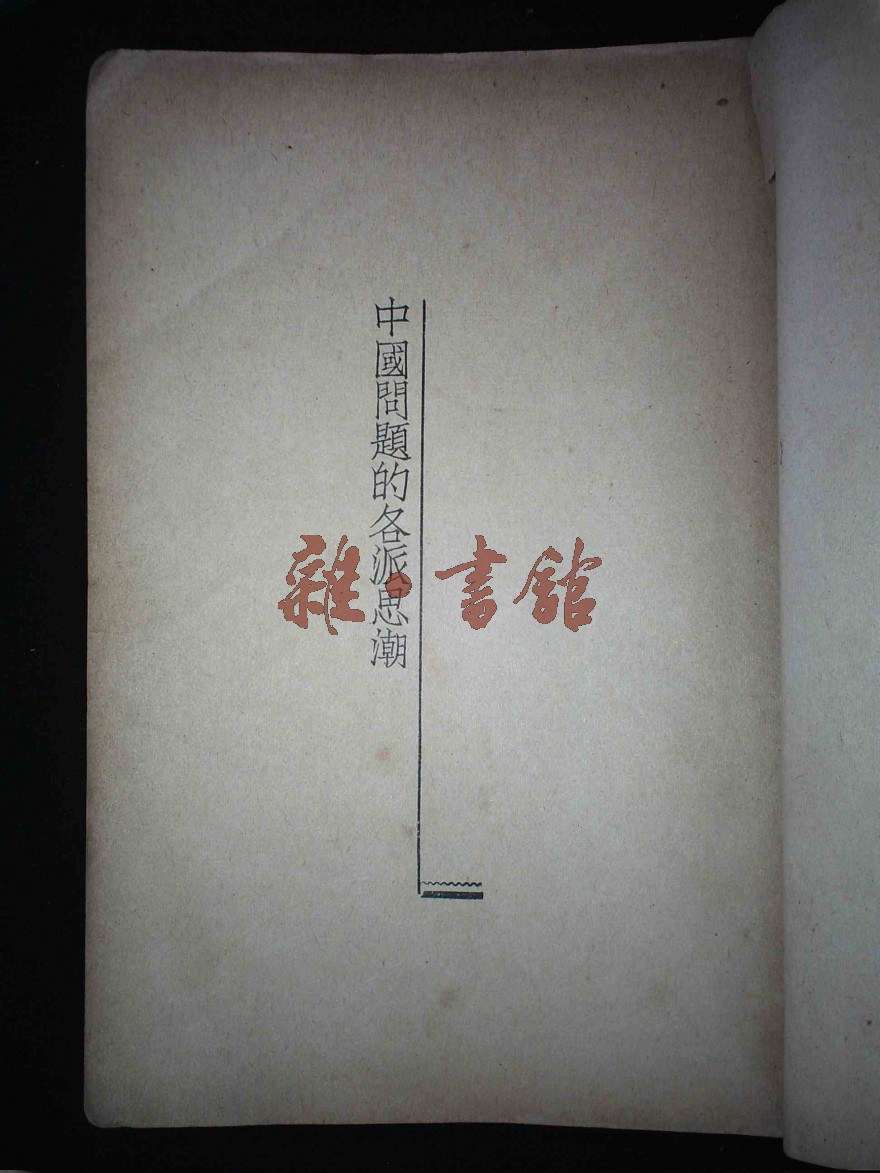 中國問題的各派思潮
雜·書館